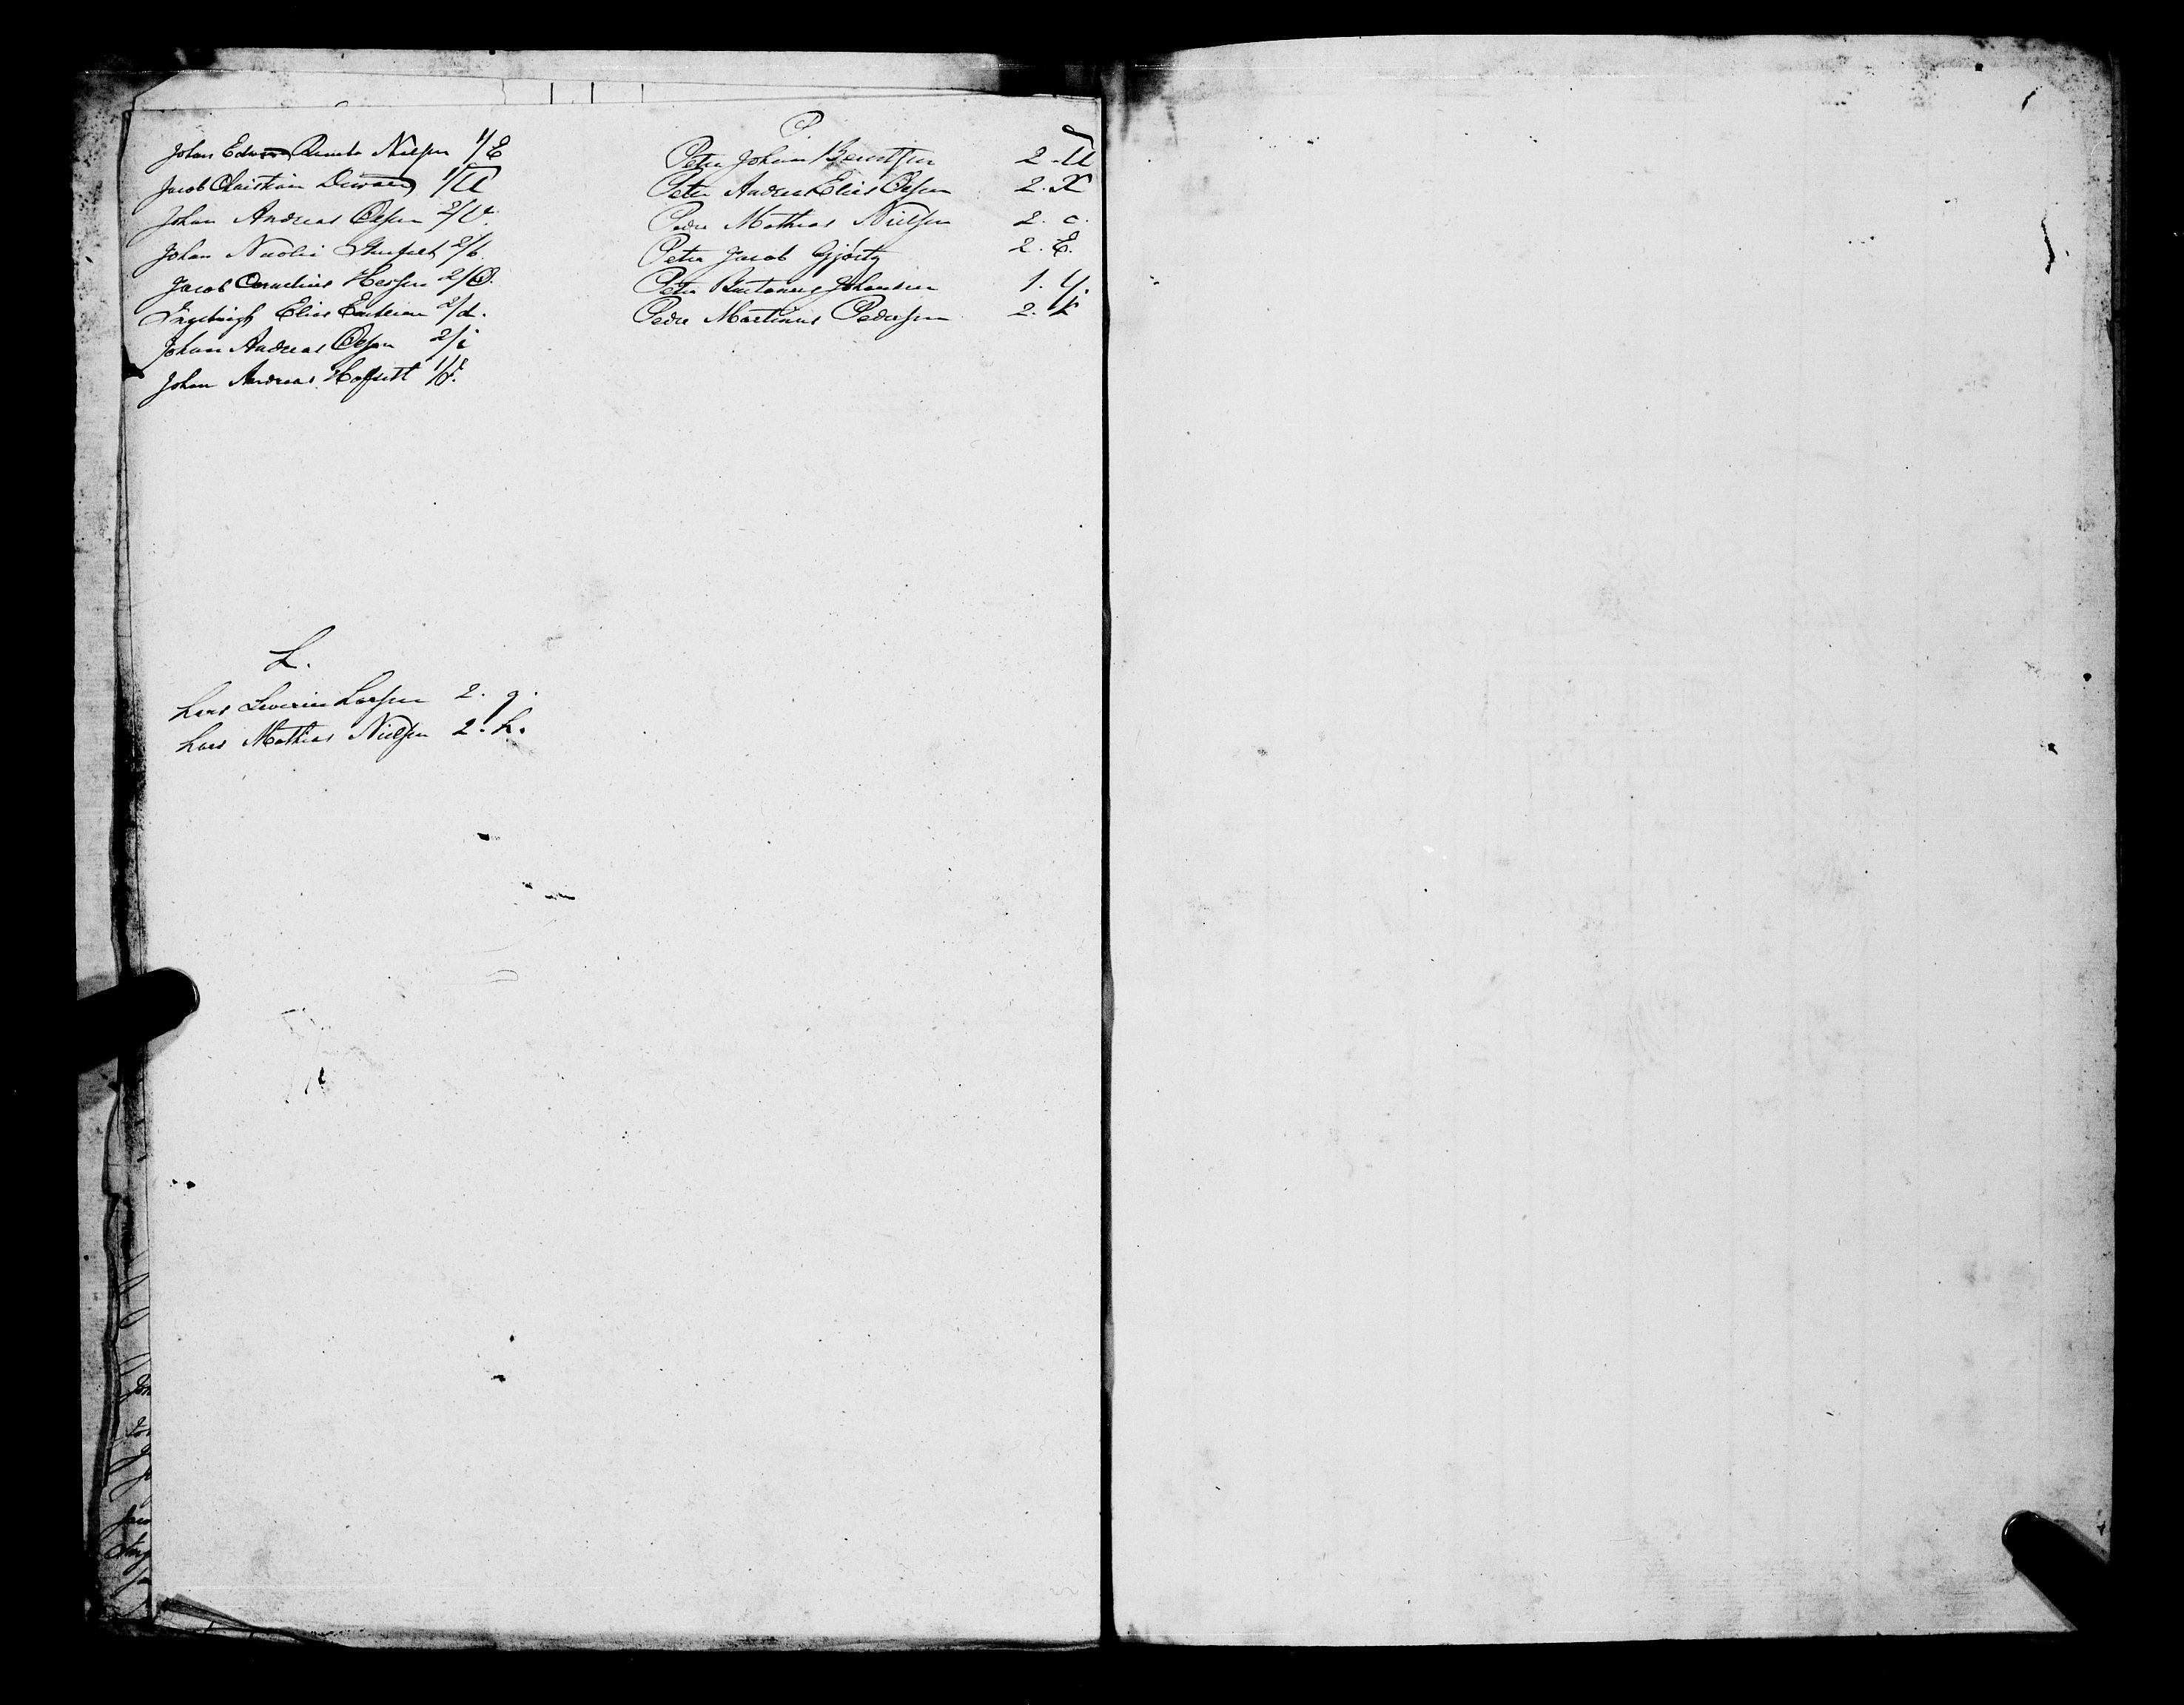 Johan Edvard Nielsen 1/E
Jacob Christian 1/U
Johan Andreas Olsen 2/V.
Johan Nicolai 2/b.
Jacob Cornelius 2/O.
Ingebrigt Elias 2/d.
Johan Andreas Olsen 2/i
Johan Andreas Hofsett 1/
L.
Lars Severin Larsen 2. g.
Lars Mathias Nielsen 2. h.
P.
Peter Johan Berntsen 2. U
Peter Andreas Elias Olsen 2. X
Peder Mathias Nielsen 2. c.
Peter Jacob Gjørtz 2. E.
Peter Antonius Johansen 1. Y.
Peder Martinus Pedersen 2. k